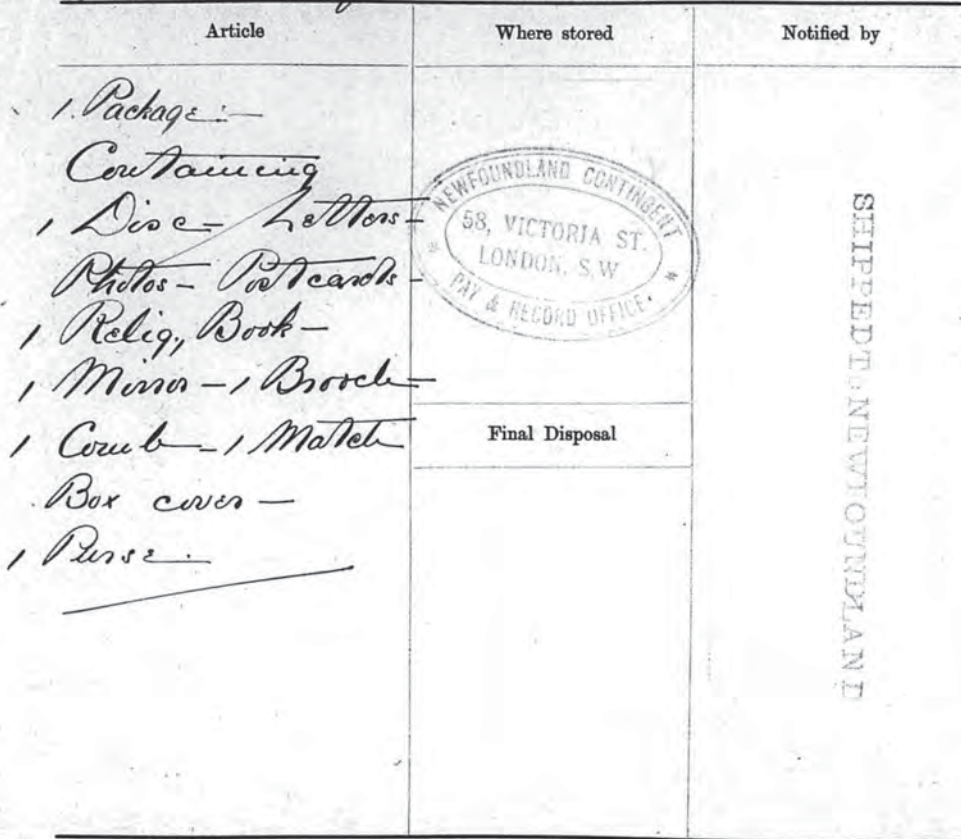 Article
Where stored
Notified by
1. Package :-
Containing
1 Disc - Letters -
Photos - Postcards -
1 Relig, Book -
1 Mirror - 1 Brooch -
1 Comb - 1 Match
Box cover -
1 Purse.
NEWFOUNDLAND CONTINGENT
58, VICTORIA ST.
LONDON, S.W
* PAY & RECORD OFFICE. *
Final Disposal
SHIPPEDT:NEWFOUNDLAND